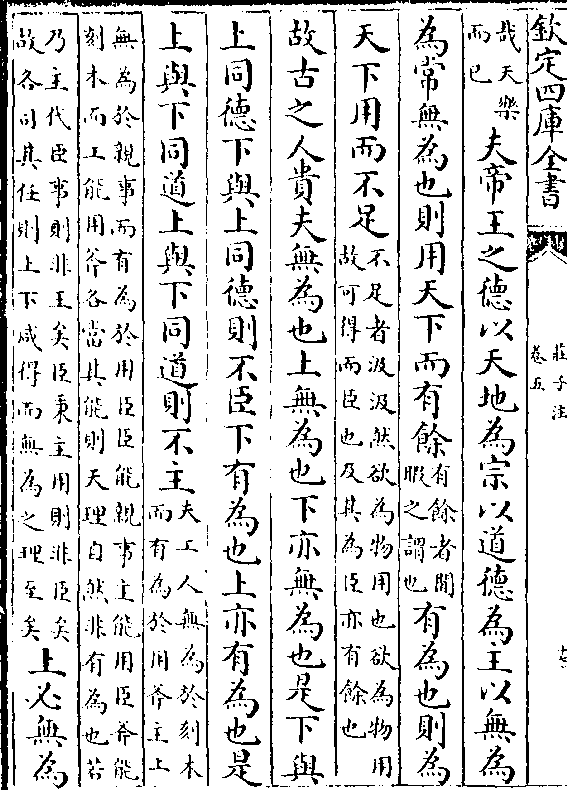 欽定四庫全書
莊子注
卷五
哉天樂
而已
夫帝王之德以天地為宗以道德為主以無為
為常無為也則用天下而有餘
有餘者閒
暇之謂也
有為也則為
天下用而不足
不足者汲汲然欲為物用也欲為物用
故可得而臣也及其為臣亦有餘也
故古之人貴夫無為也上無為也下亦無為也是下與
上同德下與上同德則不臣下有為也上亦有為也是
上與下同道上與下同道則不主
夫工人無為於刻木
而有為於用斧主上
無為於親事而有為於用臣臣能親事主能用臣斧能
刻木而工能用斧各當其能則天理自然非有為也若
乃主代臣事則非主矣臣秉主用則非臣矣
故各司其任則上下咸得而無為之理至矣
上必無為